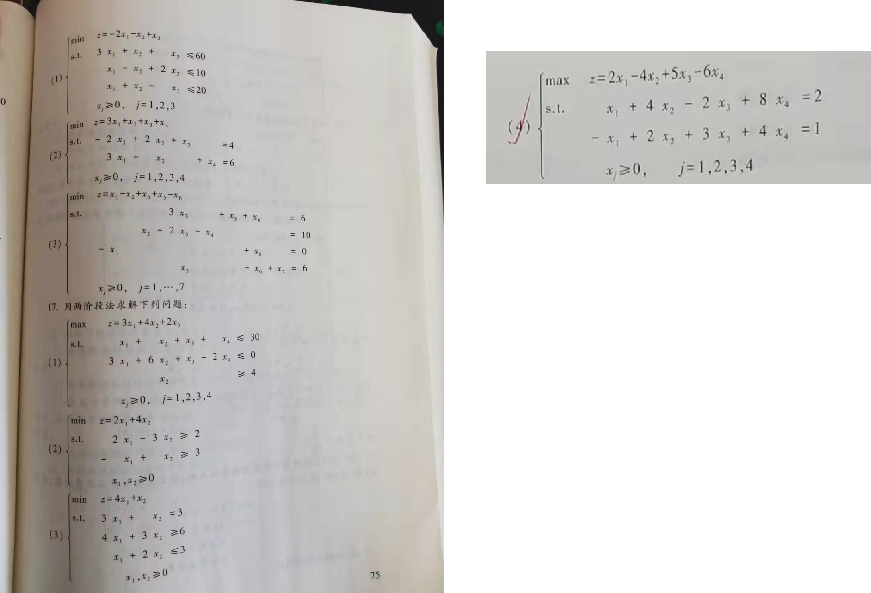 min z=-2x₁-x₂+x₃
s.t. 3 x₁ + x₂ + x₃ ≤60
(1) x₁ - x₂ + 2 x₃ ≤10
x₁ + x₂ - x₃ ≤20
xⱼ≥0, j=1,2,3
min
s.t. - 2 + 2 x₃ =4
(2) 3 x₁ - x₂ + x₄ =6
xⱼ≥0, j=1,2,3,4
min
s.t. 3 + + = 6
(3) x₂ + 2 x₃ - x₄ = 10
= 0
= 6
xⱼ≥0, j=1,⋯,7
17. 用两阶段法求解下列问题:
max z=3x₁+4x₂+2x₃
s.t. x₁ + x₂ + x₃ + x₄ ≤ 30
(1) 3 x₁ + 6 x₂ + x₃ - 2 x₄ ≤ 0
x₂ ≥ 4
xⱼ≥0, j=1,2,3,4
min z=2x₁+4x₂
s.t. 2 x₁ - 3 x₂ ≥ 2
(2) - x₁ + x₂ ≥ 3
x₁,x₂≥0
min z=4x₁+x₂
s.t. 3 x₁ + x₂ =3
(3) 4 x₁ + 3 x₂ ≥6
x₁ + 2 x₂ ≤3
x₁,x₂≥0
75
max z=2x₁-4x₂+5x₃-6x₄
s.t. x₁ + 4 x₂ - 2 x₃ + 8 x₄ =2
(4) - x₁ + 2 x₂ + 3 x₃ + 4 x₄ =1
xⱼ≥0, j=1,2,3,4